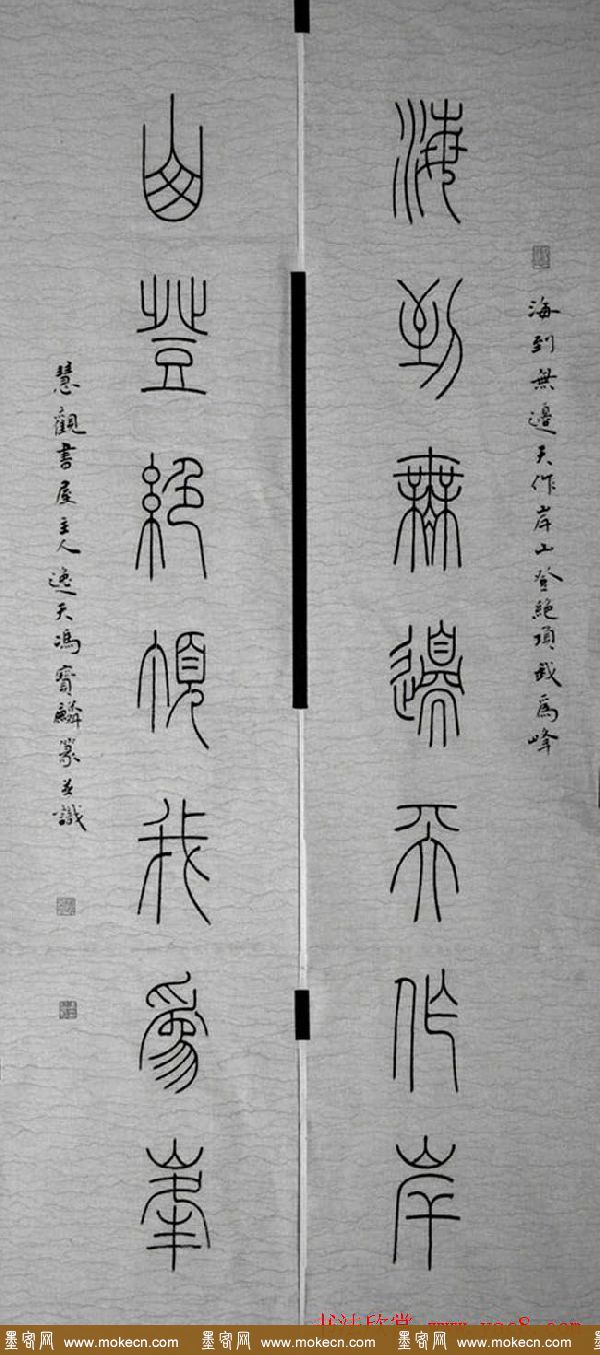 海到無邊天作岸山登絕頂我爲峰
海到無邊天作岸
山登絕頂我爲峯
慧觀書屋主人逸天馮寶麟篆並識
书法欣赏 www.yac8.com
墨客网 www.mokecn.com 墨客网 www.mokecn.com 墨客网 www.mokecn.com